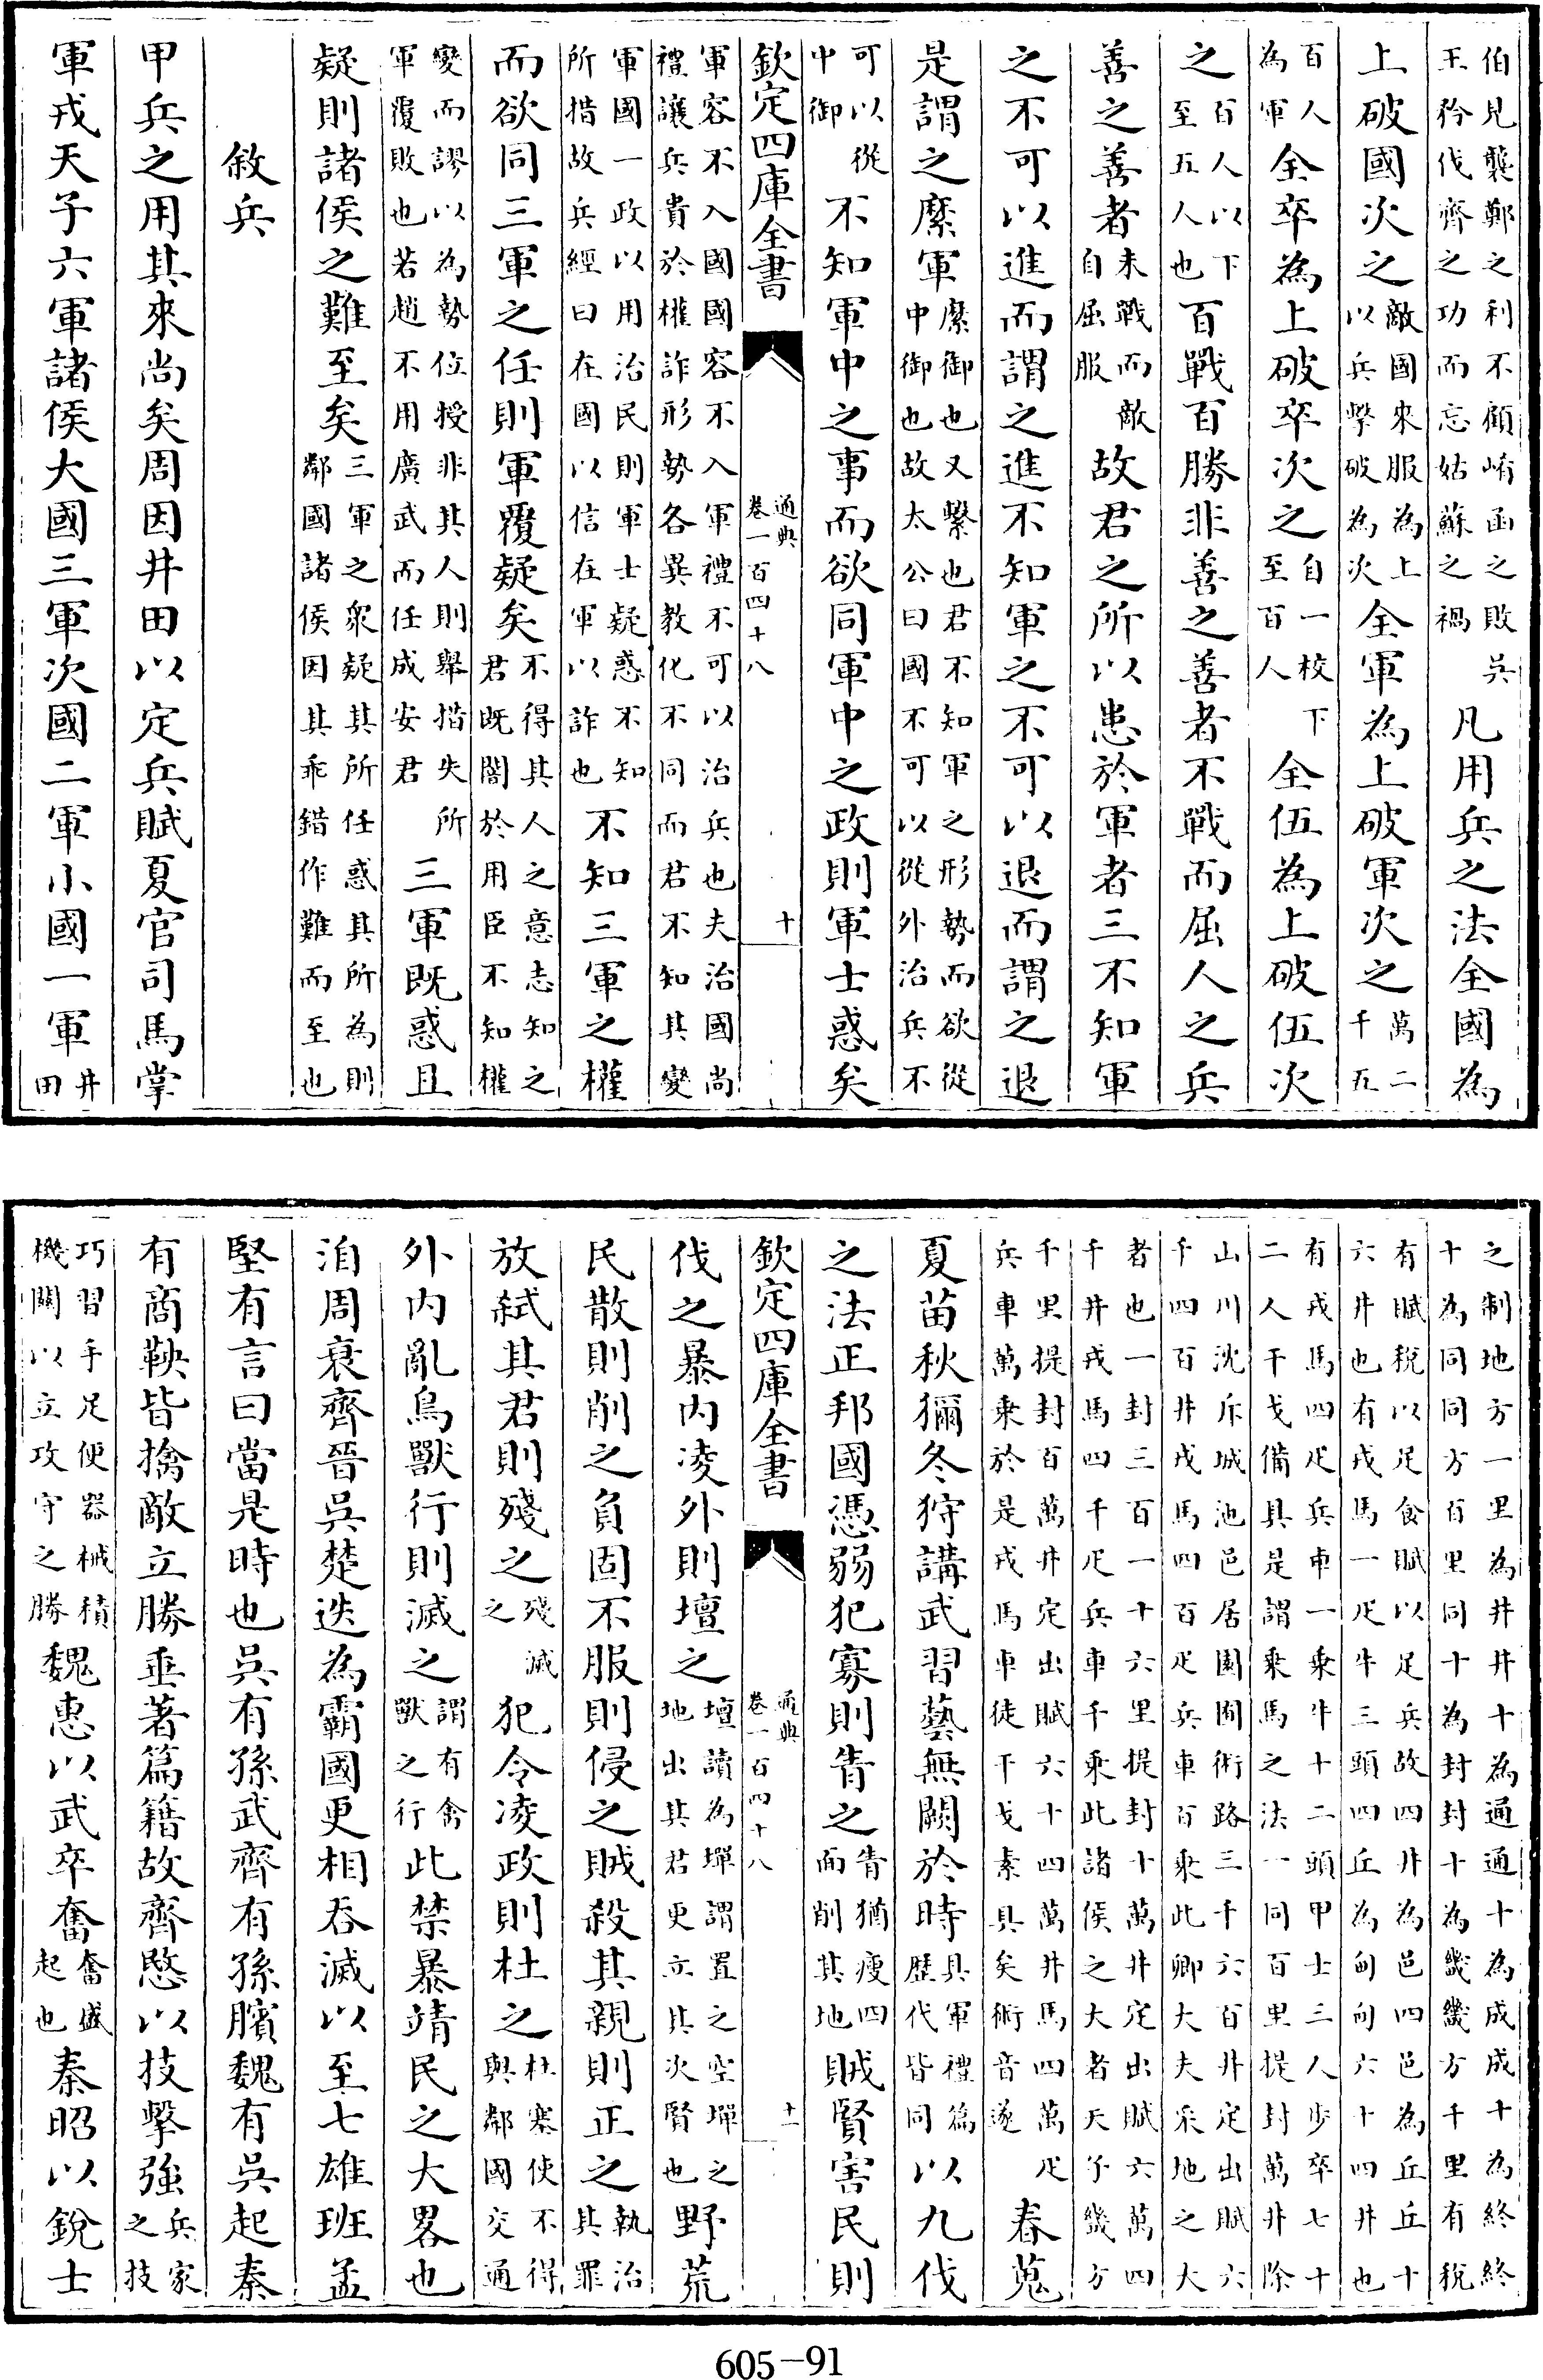 伯見襲鄭之利不顧崤函之敗吳王矜伐齊之功而忘姑蘇之禍凡用兵之法全國為
上破國次之敵國來服為上以兵擊破為次全軍為上破軍次之萬二千五
百人為軍全卒為上破卒次之自一校下至百人全伍為上破伍次
之百人以下至五人也百戰百勝非善之善者不戰而屈人之兵
善之善者未戰而敵自屈服故君之所以患於軍者三不知軍
之不可以進而謂之進不知軍之不可以退而謂之退
是謂之縻軍縻御也又繫也君不知軍之形勢而欲從中御也故太公曰國不可以從外治兵不
可以從中御不知軍中之事而欲同軍中之政則軍士惑矣
欽定四庫全書 通典卷一百四十八 十
軍容不入國國容不入軍禮不可以治兵也夫治國尚禮讓兵貴於權詐形勢各異教化不同而君不知其變
軍國一政以用治民則軍士疑惑不知所措故兵經曰在國以信在軍以詐也不知三軍之權
而欲同三軍之任則軍覆疑矣不得其人之意志知之君既闇於用臣不知權
變而謬以為勢位授非其人則舉措失所軍覆敗也若趙不用廣武而任成安君三軍既惑且
疑則諸侯之難至矣三軍之衆疑其所任惑其所為則鄰國諸侯因其乖錯作難而至也
敘兵
甲兵之用其來尚矣周因井田以定兵賦夏官司馬掌
軍戎天子六軍諸侯大國三軍次國二軍小國一軍井田
之制地方一里為井井十為通通十為成成十為終終十為同同方百里同十為封封十為畿畿方千里有稅
有賦稅以足食賦以足兵故四井為邑四邑為丘丘十六井也有戎馬一疋牛三頭四丘為甸甸六十四井也
有戎馬四疋兵車一乘牛十二頭甲士三人步卒七十二人干戈備具是謂乘馬之法一同百里提封萬井除
山川沈斥城池邑居園囿術路三千六百井定出賦六千四百井戎馬四百疋兵車百乘此卿大夫采地之大
者也一封三百一十六里提封十萬井定出賦六萬四千井戎馬四千疋兵車千乘此諸侯之大者天子畿方
千里提封百萬井定出賦六十四萬井馬四萬疋兵車萬乘於是戎馬車徒干戈素具矣術音遂春蒐
夏苗秋獮冬狩講武習藝無闕於時具軍禮篇之歷代皆同以九伐
之法正邦國憑弱犯寡則眚之眚猶瘦四面削其地賊賢害民則
欽定四庫全書 通典卷一百四十八 十一
伐之暴內凌外則壇之壇讀為墠謂置之空墠之地出其君更立其次賢也野荒
民散則削之負固不服則侵之賊殺其親則正之執治其罪
放弒其君則殘之殘滅之犯令凌政則杜之杜塞使不得與鄰國交通
外內亂鳥獸行則滅之謂有禽獸之行此禁暴靖民之大畧也
洎周衰齊晉吳楚迭為霸國更相吞滅以至七雄班孟
堅有言曰當是時也吳有孫武齊有孫臏魏有吳起秦
有商鞅皆擒敵立勝垂著篇籍故齊愍以技擊強兵家之技
巧習手足便器械積機關以立攻守之勝魏惠以武卒奮奮盛起也秦昭以銳士
605-91